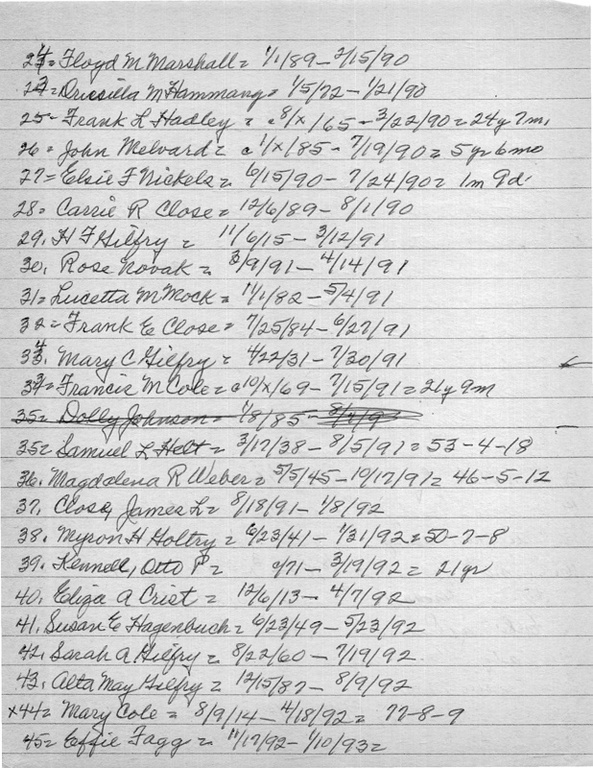 24= Floyd M Marshall= 1/1/89 - 2/15/90
23= Dricsilla M Hammang= 1/5/72 - 1/21/90
25= Frank L Hadley = c 8/x/65 - 3/22/90= 24y 7m,
26= John Melvard= c 1/x/85 - 7/19/90= 5 yr 6 mo
27= Elsie F Nickels= 6/15/90 - 7/24/90= 1m 9d
28= Carrie R Close= 12/6/89 - 8/1/90
29. H F Gilfry = 11/6/15 - 3/12/91
30. Rose Novak = 3/9/91 - 4/14/91
31= Lucetta M Mock= 11/1/82 - 5/4/91
32= Frank E Close= 7/25/84 - 6/27/91
34. Mary C Gilfry= 4/22/31 - 7/30/91
33= Francis M Cole= c 10/x/69 - 7/15/91= 21y 9m
35= Dolly Johnson= 1/8/85 -
35= Samuel L Helt= 3/17/38 - 8/5/91= 53-4-18
36. Magdalena R Weber= 5/5/45 - 10/17/91= 46-5-12
37. Close, James L= 8/18/91 - 1/8/92
38. Myron H Holtry= 6/23/41 - 1/31/92= 50-7-8
39. Kennell, Otto P= c/71 - 3/19/92= 21yr
40. Eliza A Crist= 12/6/13 - 4/7/92
41. Susan E Hagenbuch= 6/23/49 - 5/23/92
42. Sarah A Gilfry= 8/22/60 - 7/19/92
43. Alta May Gilfry= 12/15/87 - 8/9/92
x44= Mary Cole= 8/9/14 - 4/18/92= 77-8-9
45= Effie Fagg= 11/17/92 - 1/10/93=